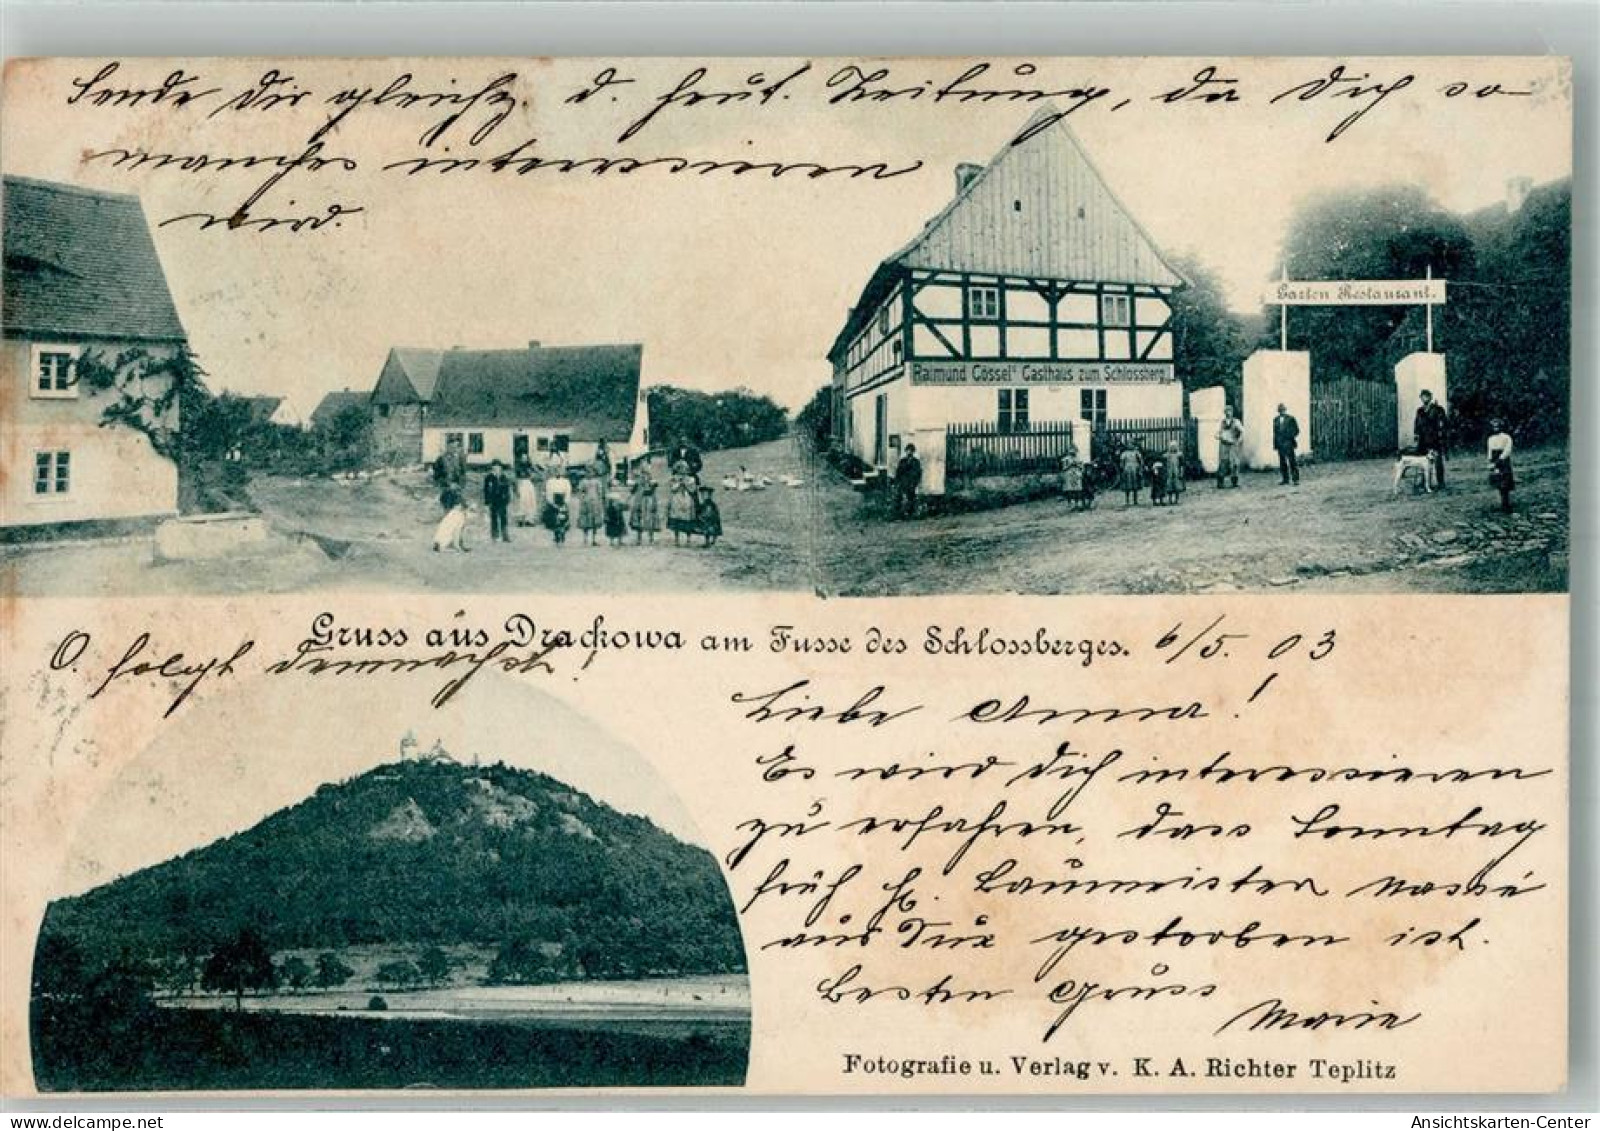 Sende Dir gleichz. d. heut. Zeitung, da Dich so
manches interessieren
wird.
Garten Restaurant.
Raimund Gössel's Gasthaus zum Schlossberg
Gruss aus Drackowa am Fusse des Schlossberges. 6/5. 03
O. folgt demnächst!
Liebe Anna!
Es wird Dich interessieren
zu erfahren, dass Sonntag
früh H. Baumeister Nossé
aus Dux gestorben ist.
Besten Gruss
Marie
Fotografie u. Verlag v. K. A. Richter Teplitz
Ansichtskarten-Center